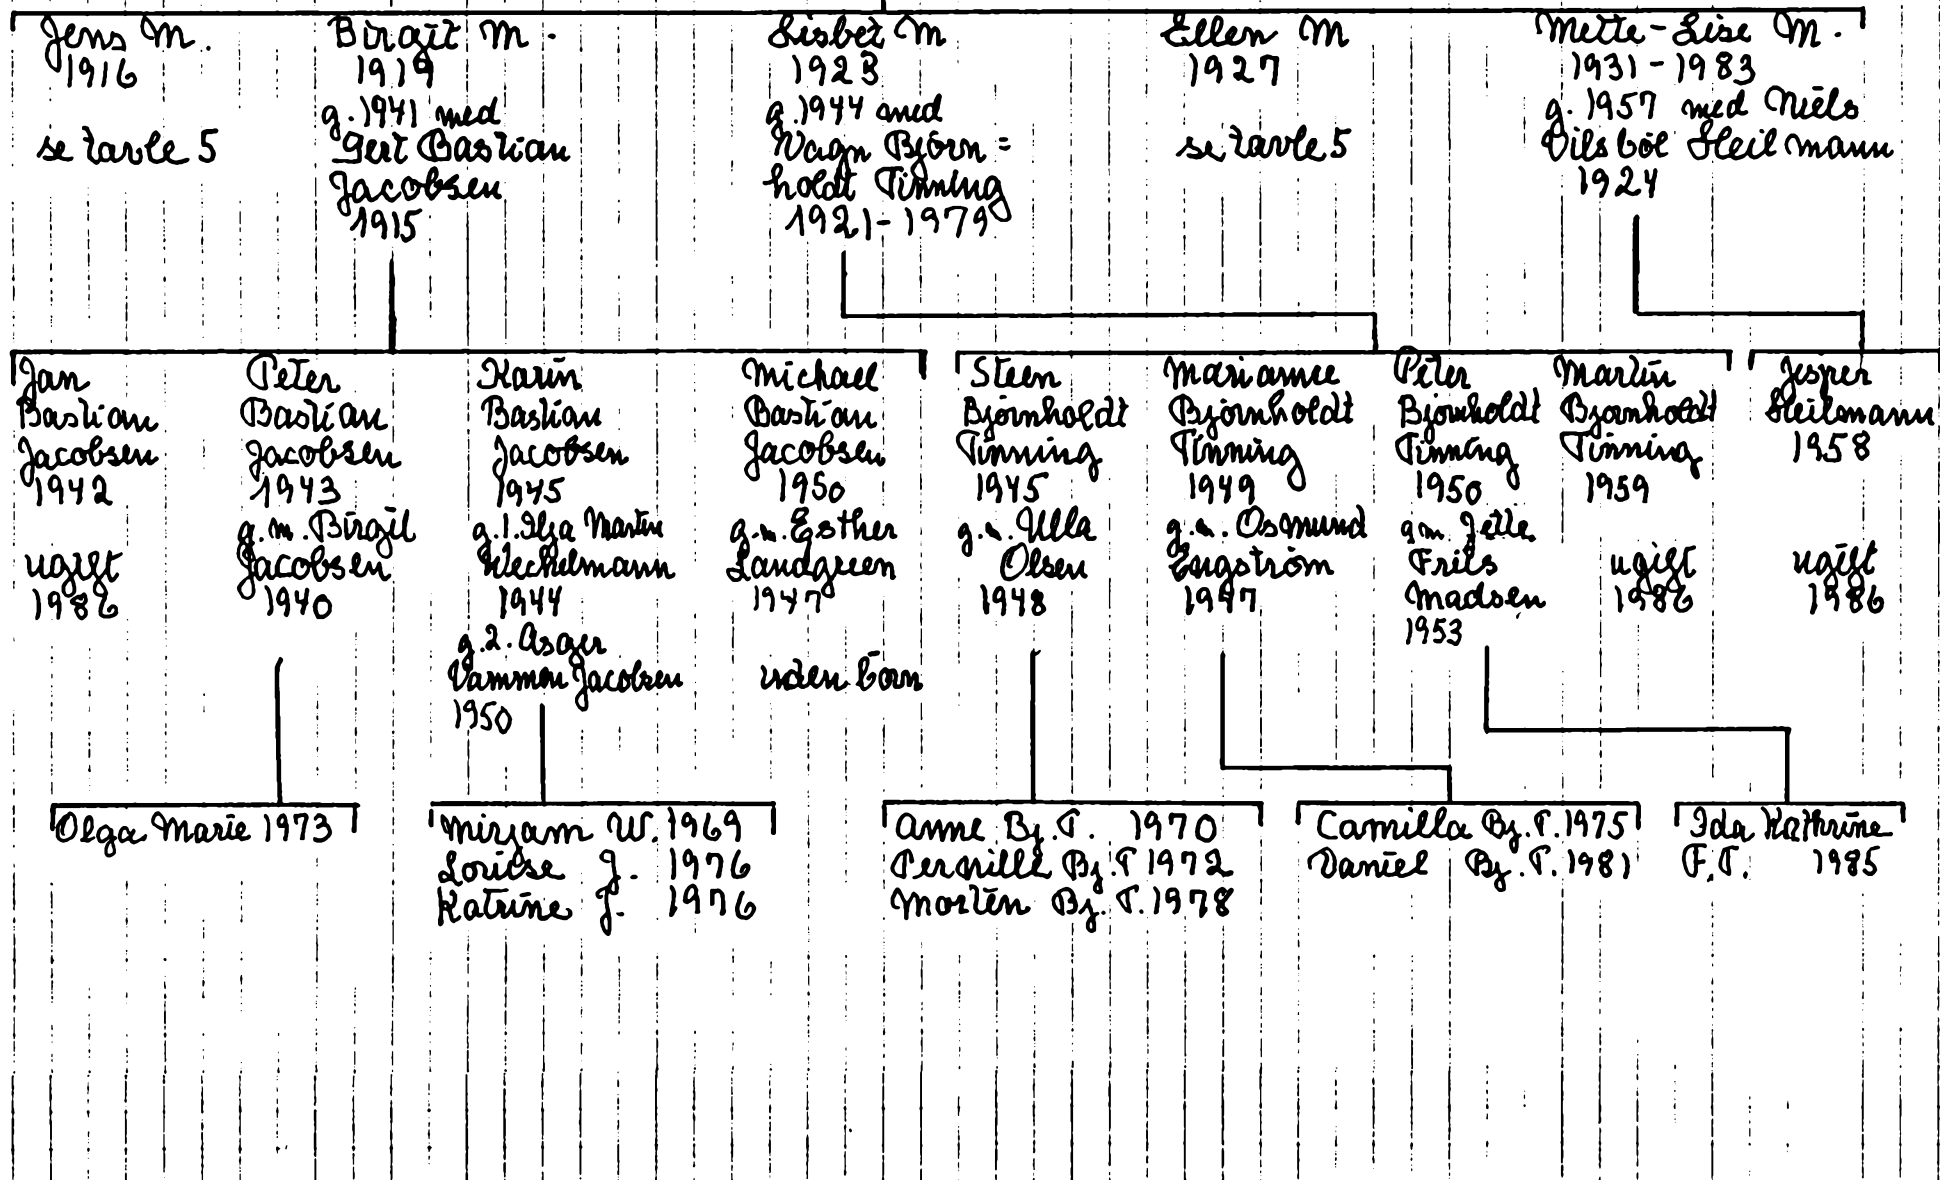 Jens M.
1916
se tavle 5
Birgit M.
1919
g. 1941 med
Gert Bastian
Jacobsen
1915
Lisbet M
1923
g. 1944 med
Vagn Bjørn=
holdt Tinning
1921-1979
Ellen M
1927
se tavle 5
Mette-Lise M.
1931-1983
g. 1957 med Niels
Vilsböl Heilmann
1924
Jan
Bastian
Jacobsen
1942
ugift
1986
Peter
Bastian
Jacobsen
1943
g.m. Birgit
Jacobsen
1940
Karin
Bastian
Jacobsen
1945
g.1. Ilja Martin
Wechselmann
1944
g.2. Asger
Vammen Jacobsen
1950
Michael
Bastian
Jacobsen
1950
g.m. Esther
Landgreen
1947
uden børn
Steen
Bjørnholdt
Tinning
1945
g.m. Ulla
Olsen
1948
Marianne
Bjørnholdt
Tinning
1949
g.m. Osmund
Engstrøm
1947
Peter
Bjørnholdt
Tinning
1950
g.m. Jette
Friis
Madsen
1953
Martin
Bjørnholdt
Tinning
1959
ugift
1986
Jesper
Heilmann
1958
ugift
1986
Olga Marie 1973
Mirjam W. 1969
Louise J. 1976
Katrine J. 1976
Anne Bj. T. 1970
Pernille Bj. T 1972
Morten Bj. T. 1978
Camilla Bj. T. 1975
Daniel Bj. T. 1981
Ida Kathrine
F.T. 1985